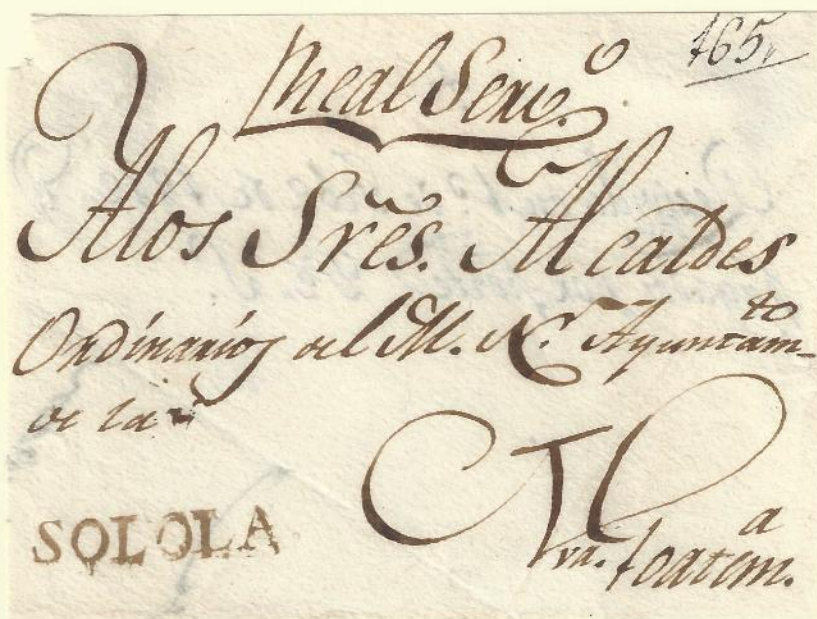 165„
Real Servº.
A los Sres. Alcaldes
Ordinarios del M. N. Ayuntamto
de la
SOLOLA
Nva. Goatema.